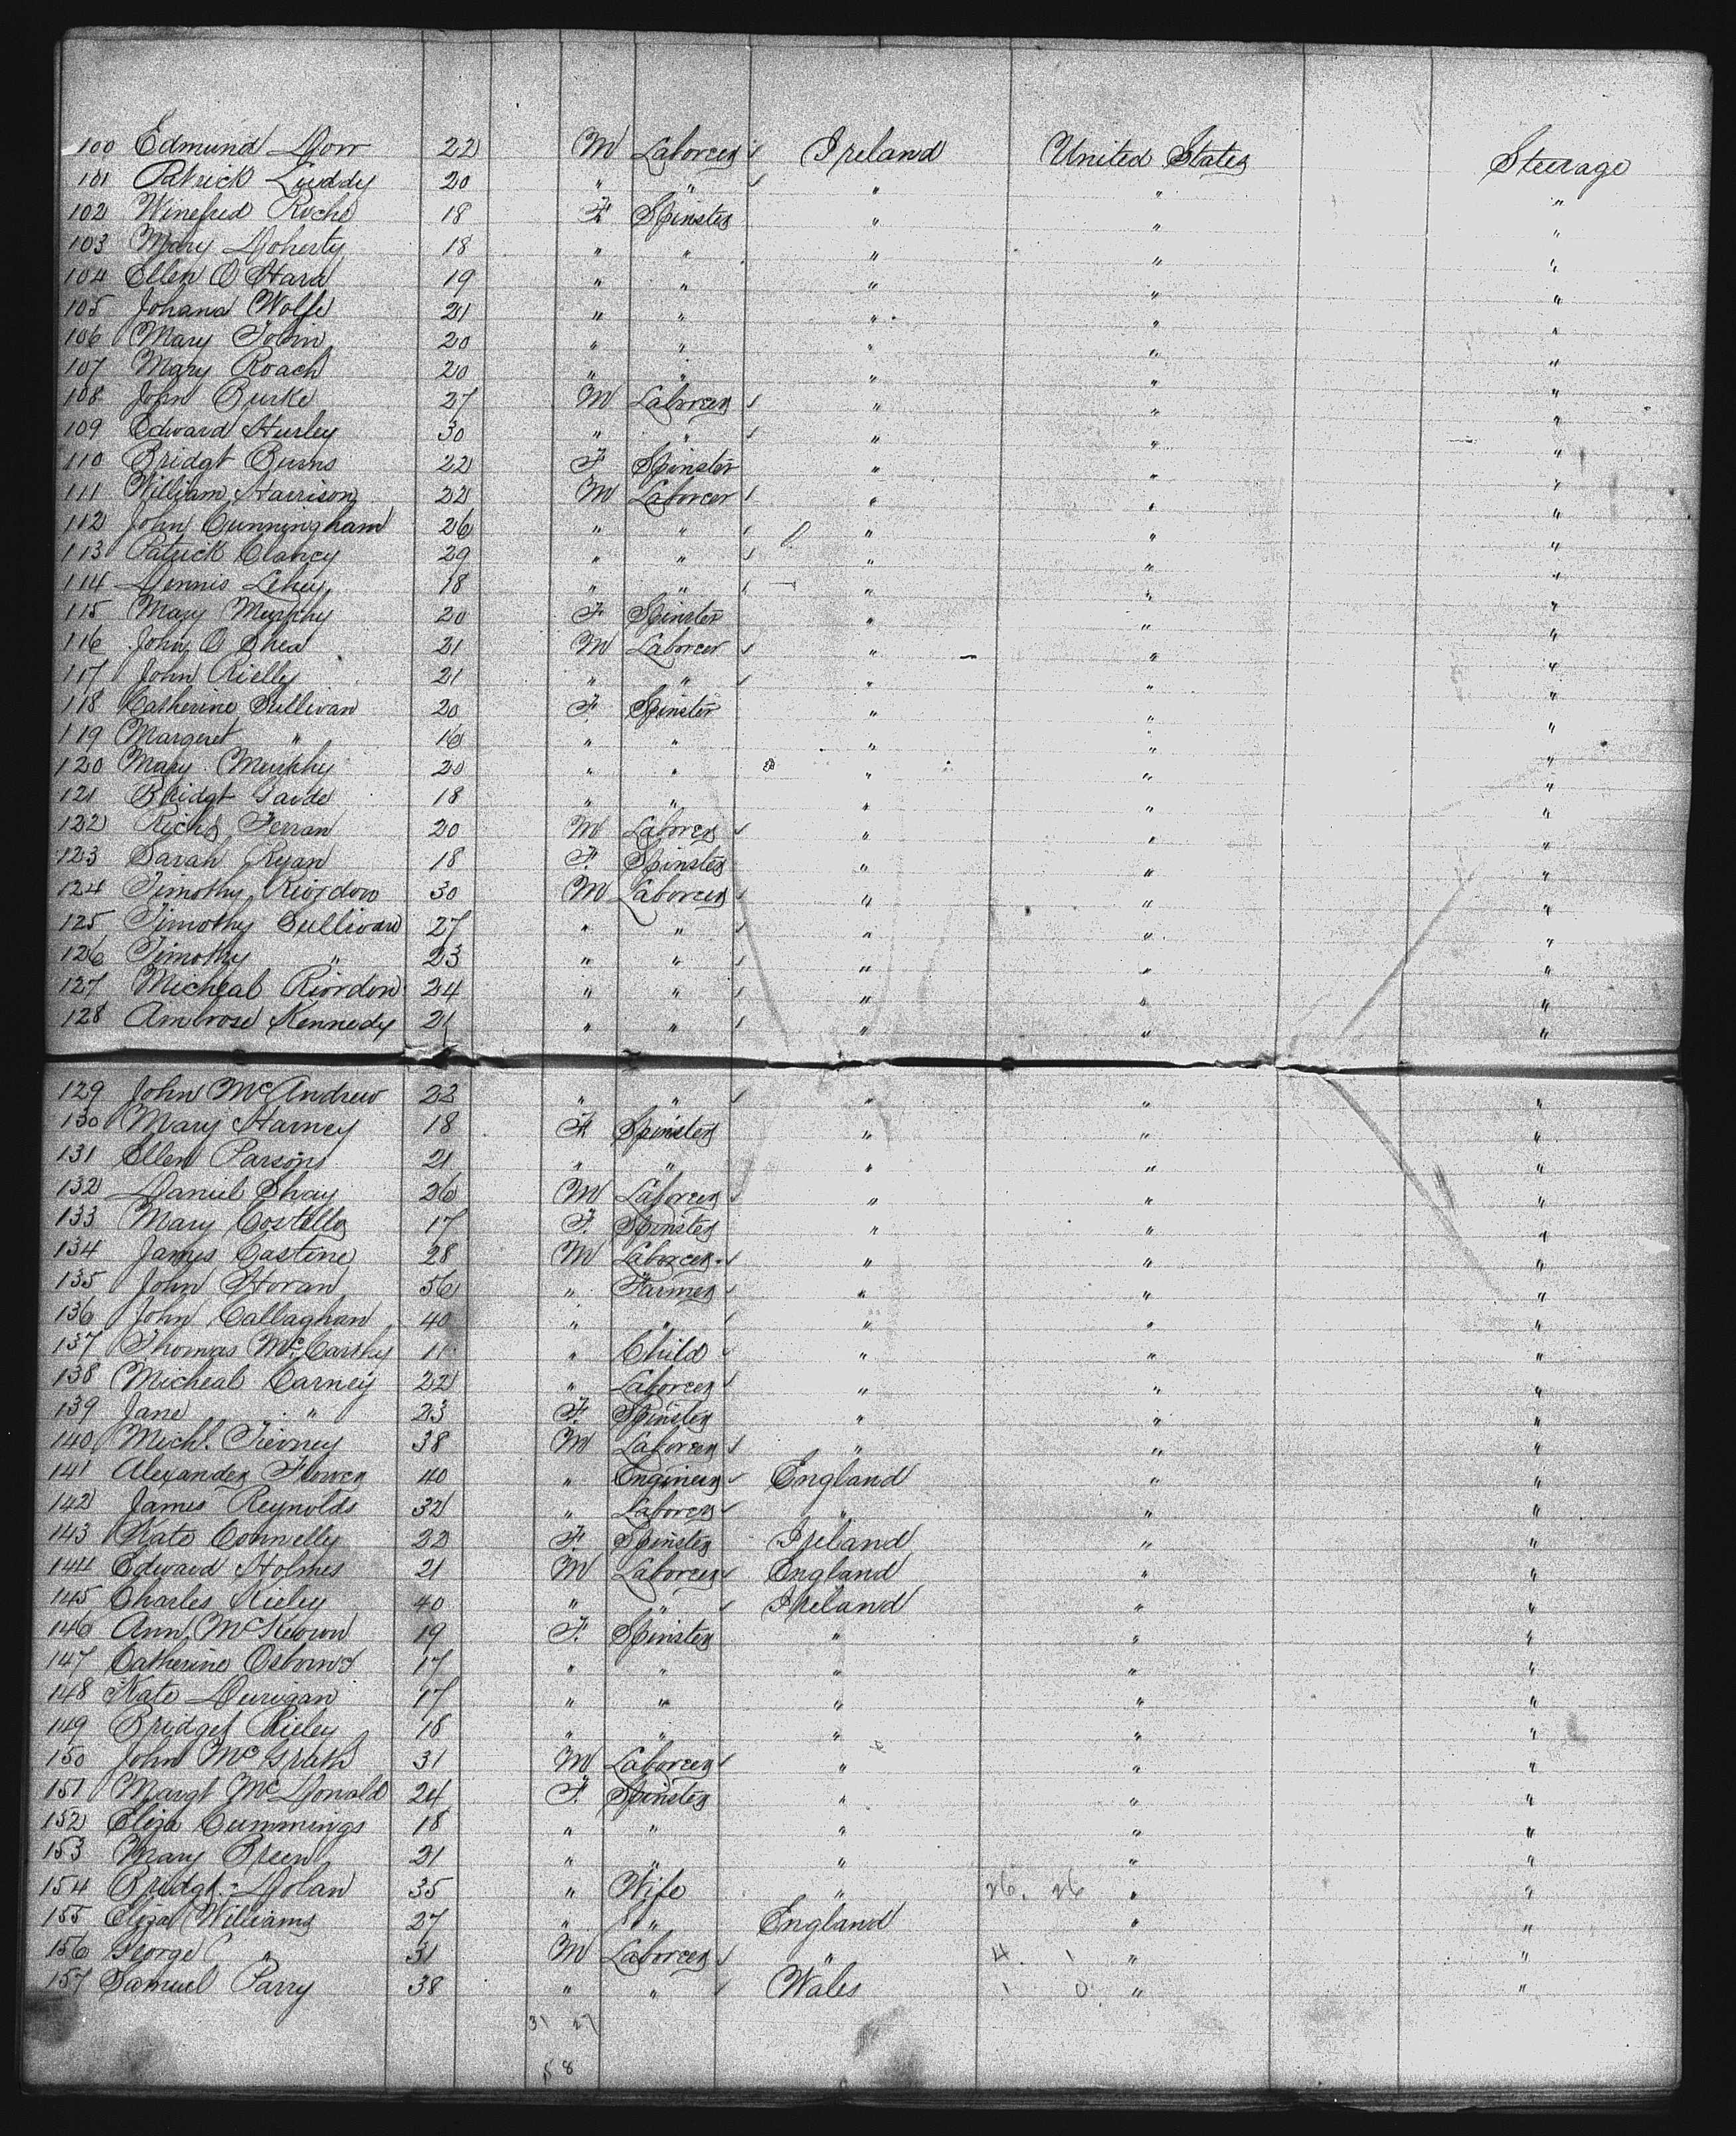 100 Edmund Dorr 22 M Laborer Ireland United States Steerage
101 Patrick Luddy 20 " " " " "
102 Winefred Roche 18 F Spinster " " "
103 Mary Doherty 18 " " " " "
104 Ellen O Hara 19 " " " " "
105 Johana Wolfe 21 " " " " "
106 Mary Tobin 20 " " " " "
107 Mary Roach 20 " " " " "
108 John Burke 27 M Laborer " " "
109 Edward Hurley 30 " " " " "
110 Bridgt Burns 22 F Spinster " " "
111 William Harrison 22 M Laborer " " "
112 John Cunningham 26 " " " " "
113 Patrick Clancy 29 " " " " "
114 Dennis Lehey 18 " " " " "
115 Mary Murphy 20 F Spinster " " "
116 John O Shea 21 M Laborer " " "
117 John Rielly 21 " " " " "
118 Catherine Sullivan 20 F. Spinster " " "
119 Margeret " 16 " " " " "
120 Mary Murphy 20 " " " " "
121 Bridgt 18 " " " " "
122 Richd Ferran 20 M Laborer " " "
123 Sarah Ryan 18 F. Spinster " " "
124 Timothy Riordon 30 M Laborer " " "
125 Timothy Sullivan 27 " " " " "
126 Timothy " 23 " " " " "
127 Micheal Riordon 24 " " " " "
128 Ambrose Kennedy 21 " " " " "
129 John McAndrew 22 " " " " "
130 Mary Harney 18 F Spinster " " "
131 Ellen Parsons 21 " " " " "
132 Daniel Shay 26 M Laborer " " "
133 Mary Costello 17 F. Spinster " " "
134 James Castine 28 M Laborer " " "
135 John Horan 56 " Farmer " " "
136 John Callaghan 40 " " " " "
137 Thomas McCarthy 11 " Child " " "
138 Micheal Carney 22 " Laborer " " "
139 Jane " 23 F. Spinster " " "
140 Michl. Tierney 38 M Laborer " " "
141 Alexander Flower 40 " Engineer England " "
142 James Reynolds 32 " Laborer " " "
143 Kate Connelly 22 F. Spinster Ireland " "
144 Edward Holmes 21 M Laborer England " "
145 Charles Rieley 40 " " Ireland " "
146 Ann McKeown 19 F. Spinster " " "
147 Catherine Osborne 17 " " " " "
148 Kate Durigan 17 " " " " "
149 Bridget Rieley 18 " " " " "
150 John McGrath 31 M Laborer " " "
151 Margt McDonald 24 F. Spinster " " "
152 Eliza Cummings 18 " " " " "
153 Mary Breen 21 " " " " "
154 Bridgt. Dolan 35 " Wife " 26. 26 " "
155 Eliza Williams 27 " " England " "
156 George " 31 M Laborer " 4 1 " "
157 Samuel Parry 38 " " Wales 1 0 " "
31 27
58